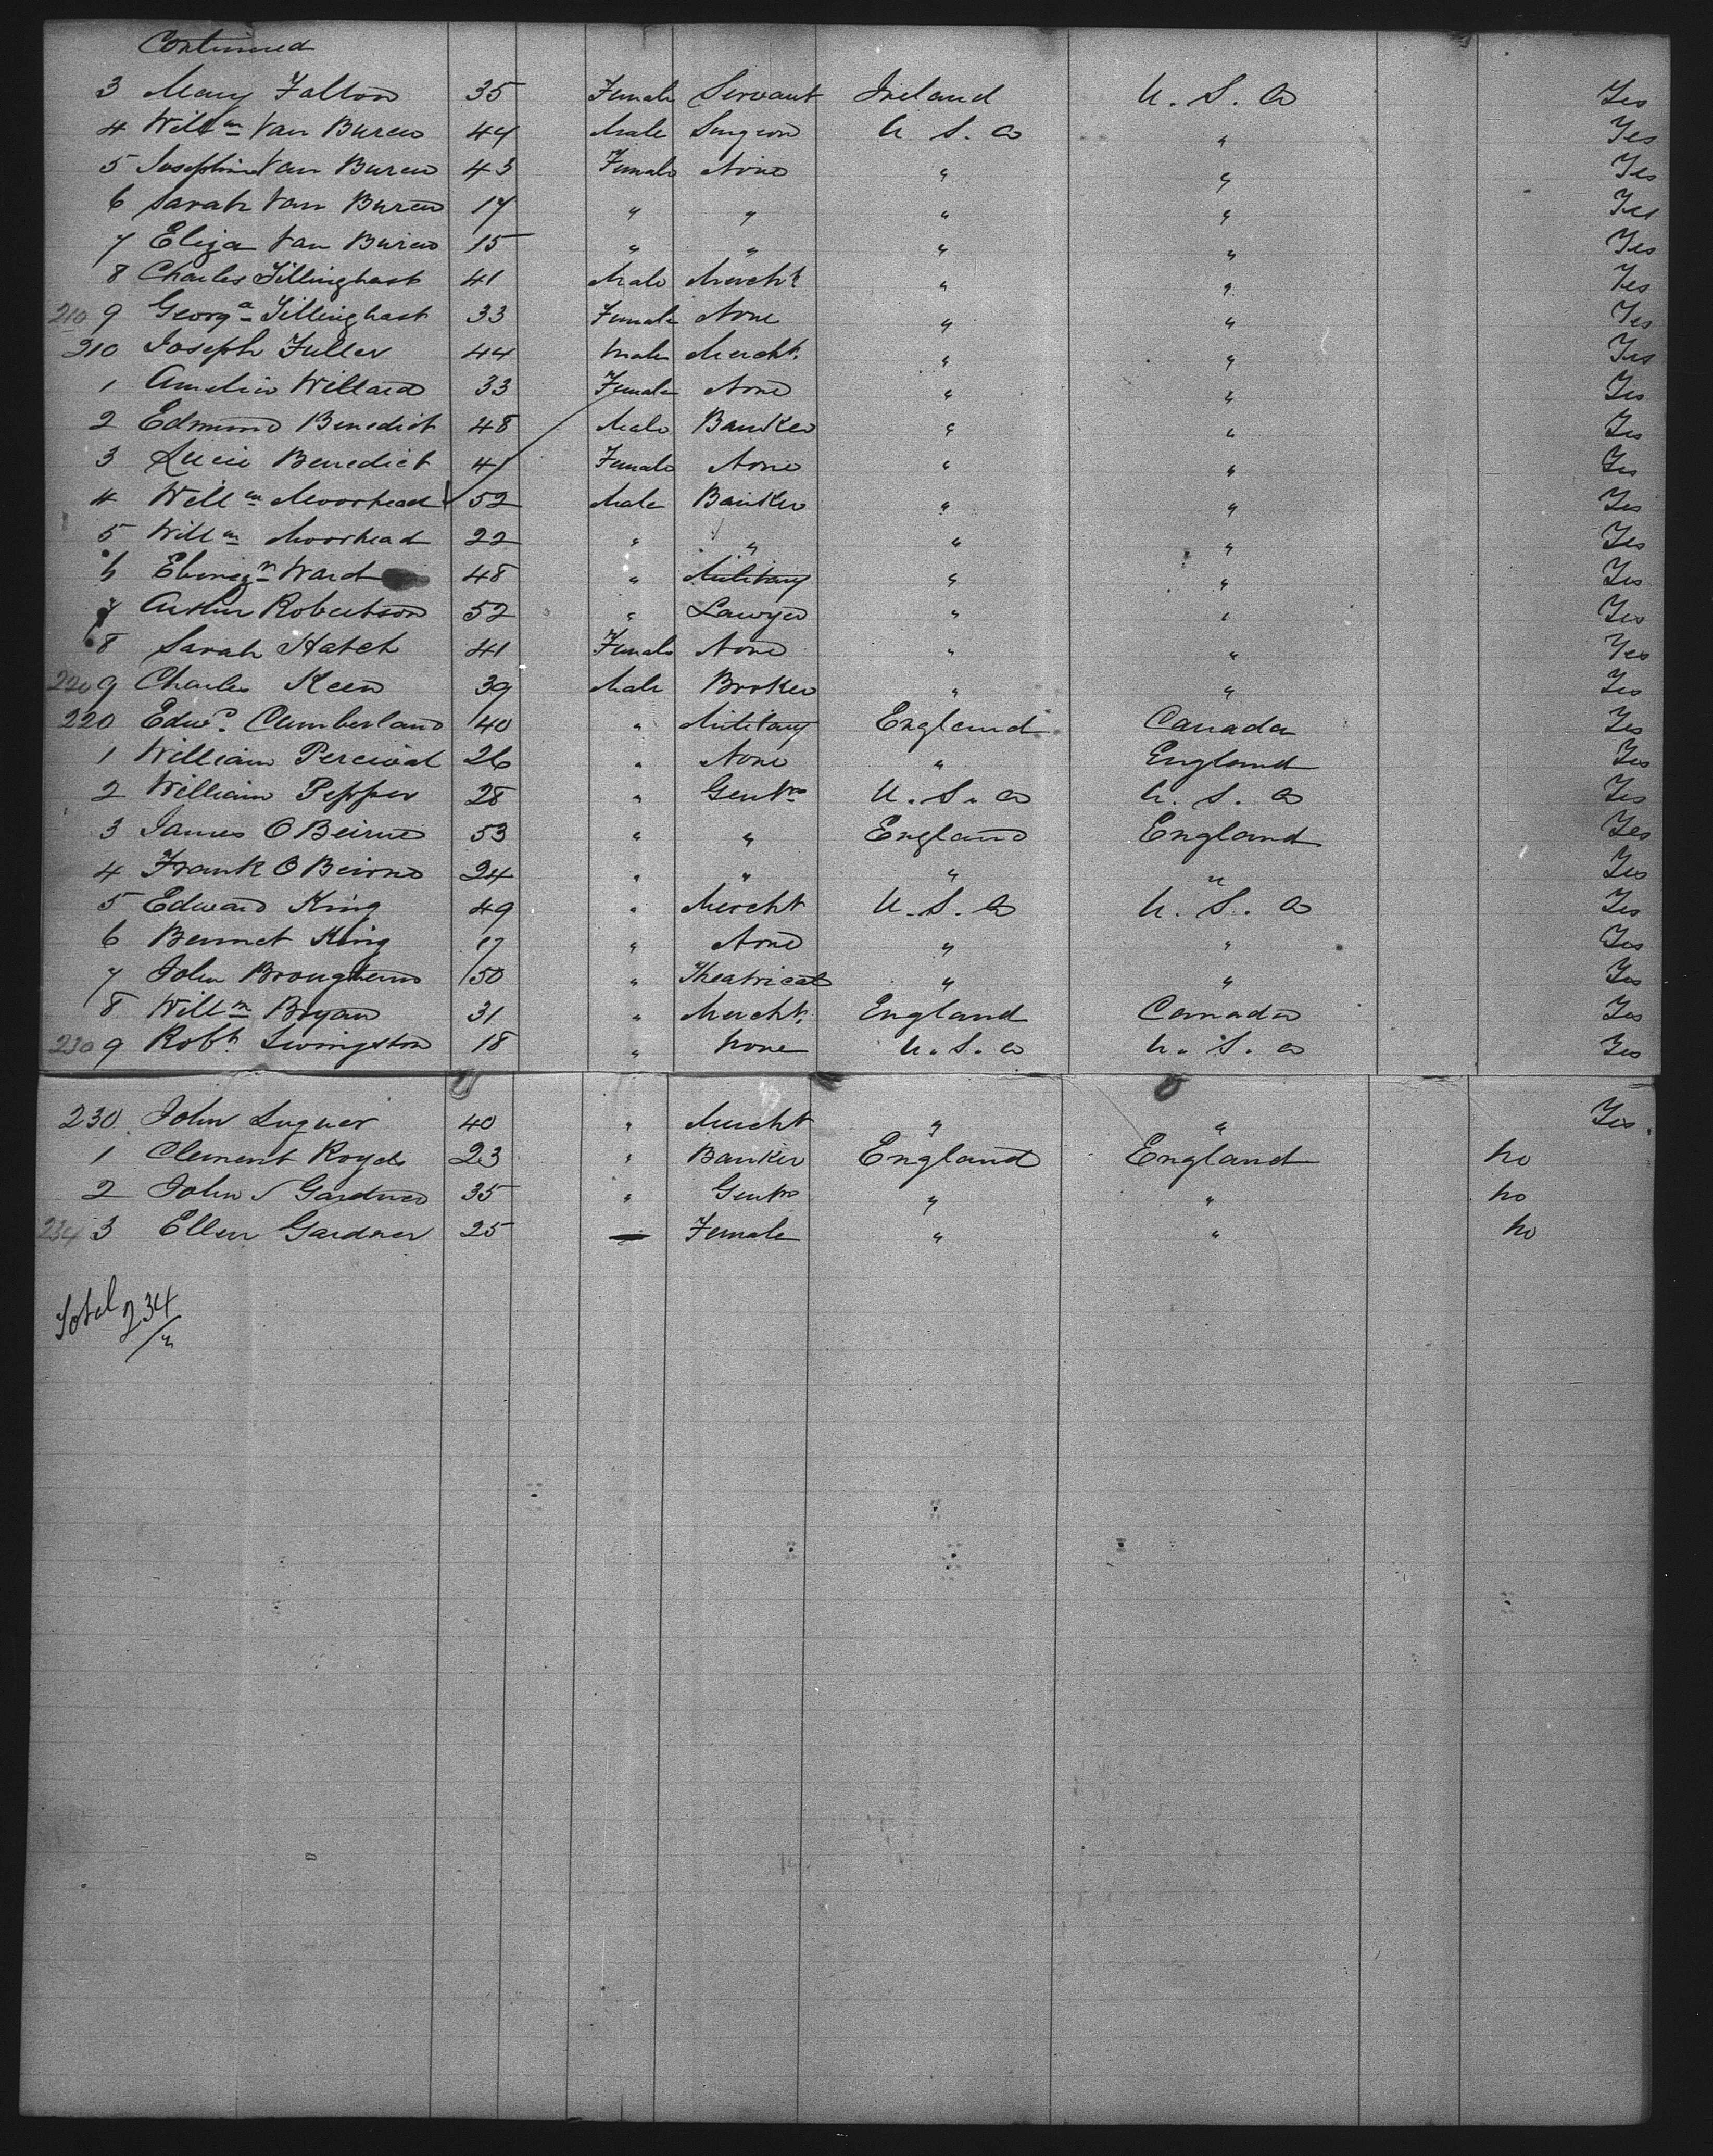 Continued
3 Mary Falton 35 Female Servant Ireland U. S. A Yes
4 Willm Van Buren 44 Male Surgeon U S. A " Yes
5 Josephine Van Buren 43 Female None " " Yes
6 Sarah Van Buren 17 " " " " Yes
7 Eliza Van Buren 15 " " " " Yes
8 Charles Tillinghast 41 Male Mercht " " Yes
210 9 Georga Tillinghast 33 Female None " " Yes
210 Joseph Fuller 44 Male Mercht. " " Yes
1 Amelia Willard 33 Female None " " Yes
2 Edmund Benedict 48 Male Banker " " Yes
3 Lucie Benedict 41 Female None " " Yes
4 Willm Moorhead 52 Male Banker " " Yes
5 Willm Moorhead 22 " " " " Yes
6 Ebenezr Ward 48 " Military " " Yes
7 Arthur Robertson 52 " Lawyer " " Yes
8 Sarah Hatch 41 Female None " " Yes
220 9 Charles Keen 39 Male Broker " " Yes
220 Edwd. Cumberland 40 " Military England Canada Yes
1 William Percival 26 " None " England Yes
2 William Pepper 28 " Gentn U. S. A U. S. A Yes
3 James O Beirne 53 " " England England Yes
4 Frank O Beirne 24 " " " " Yes
5 Edward King 49 " Mercht U. S. A U. S. A Yes
6 Bennet King 17 " None " " Yes
7 John Brougham 50 " Theatrical " " Yes
8 Willm Bryan 31 " Mercht. England Canada Yes
230 9 Robt. Livingston 18 " None U. S. A U. S. A Yes
230 John Luquer 40 " Mercht " " Yes.
1 Clement Royds 23 " Banker England England No
2 John S Gardner 35 " Gentn " " No
234 3 Ellen Gardner 25 — Female " " No
Total 234